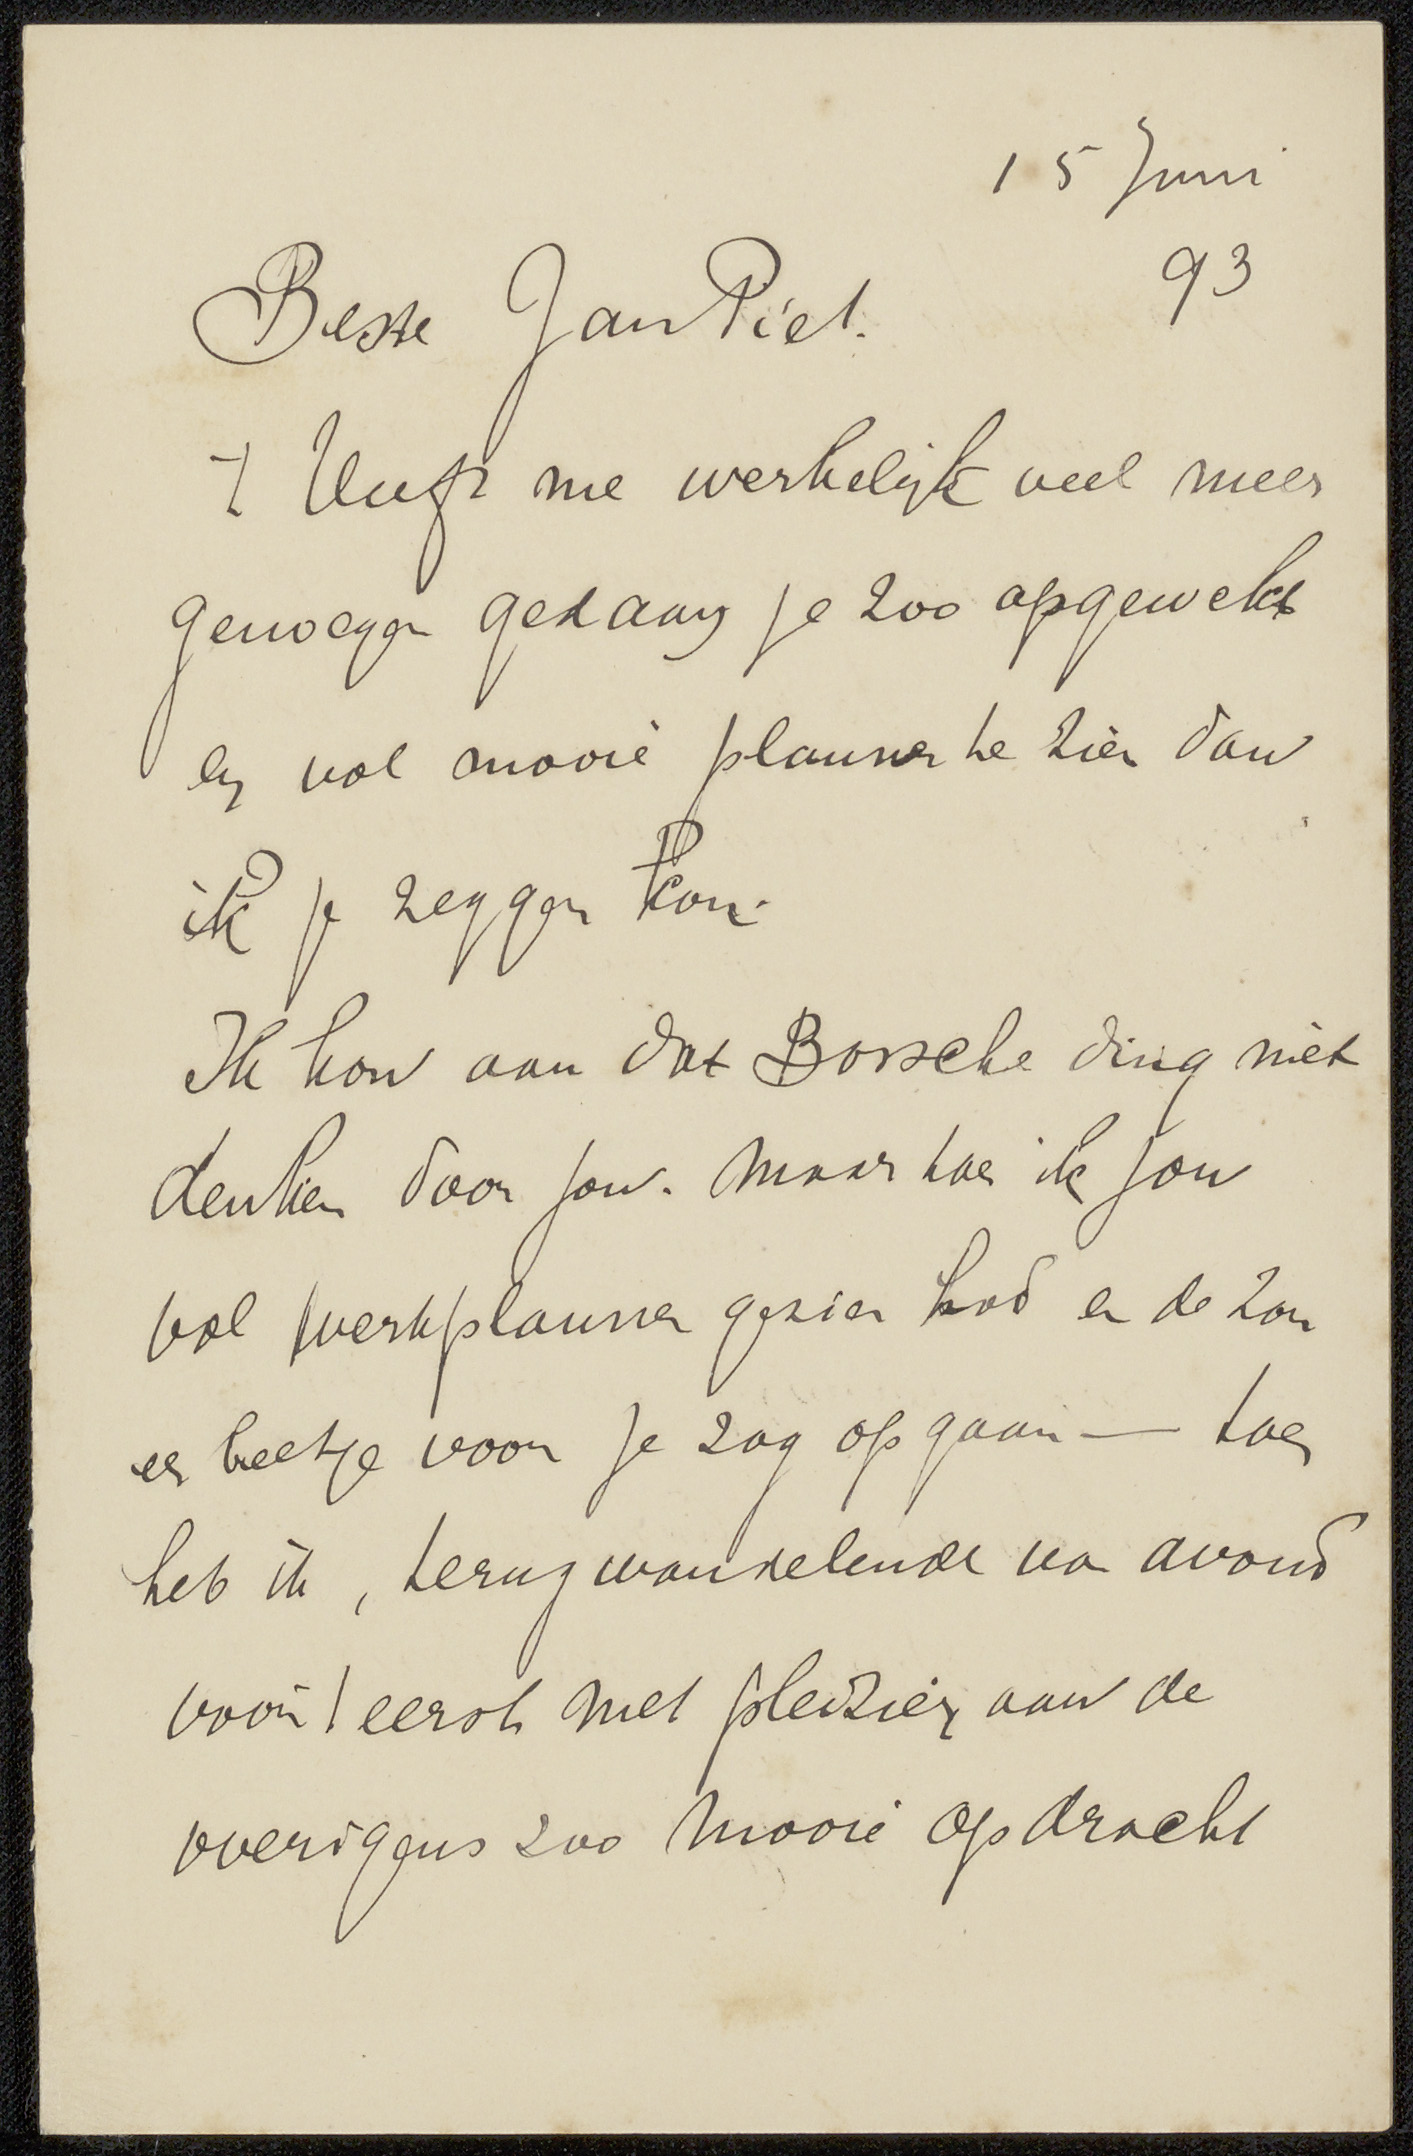 15 Juni
93
Beste Jan Piet.
't Heeft me werkelijk veel meer
genoegen gedaan je zoo opgewekt
en vol mooie plannen te zien dan
ik je zeggen kon.
Ik kon aan dat Borsche ding niet
denken door jou. Maar toen ik jou
vol werkplannen gezien had en de zon
een beetje voor je zag opgaan — toen
heb ik, terugwandelende van avond
voor 't eerst met pleizier aan de
overigens zoo mooie opdracht